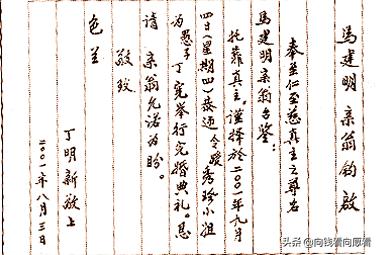 馬建明 亲翁钧啟
奉至仁至慈真主之尊名
馬建明亲翁台鉴：
托靠真主。谨择於二〇〇一年九月
四日(星期四)恭迎 令嫒秀珍小姐
为愚子丁宪举行完婚典礼。恳
请 亲翁允诺为盼。
敬致
色兰
丁明新敬上
二〇〇一年八月三日
头条 @向钱看向厚看